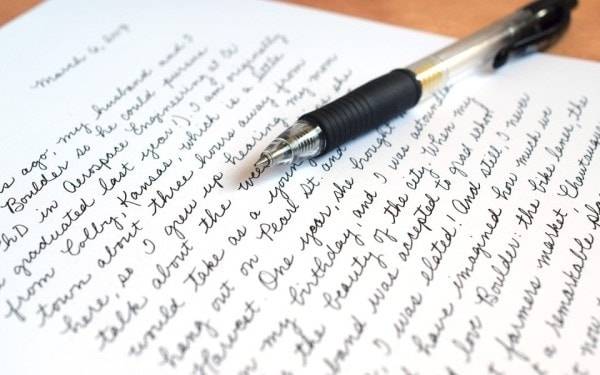 March 6, 2013
s ago. my husband and I
Boulder so he could pursue
hD in Aerospace Engineering at C
graduated last year!) I am originally
from Colby, Kansas, which is a little
town about three hours away from
here, so I grew up hearing my mom
talk about the
would take as a young
hang out on Pearl St and
Harvest. One year, she brought
my birthday, and I was
the beauty of the city. When my
band was accepted to grad school
I was elated! And still I never
have imagined how much we
love Boulder: the bike lanes, the
farmers market, Chautauqua
a remarkable pla
now